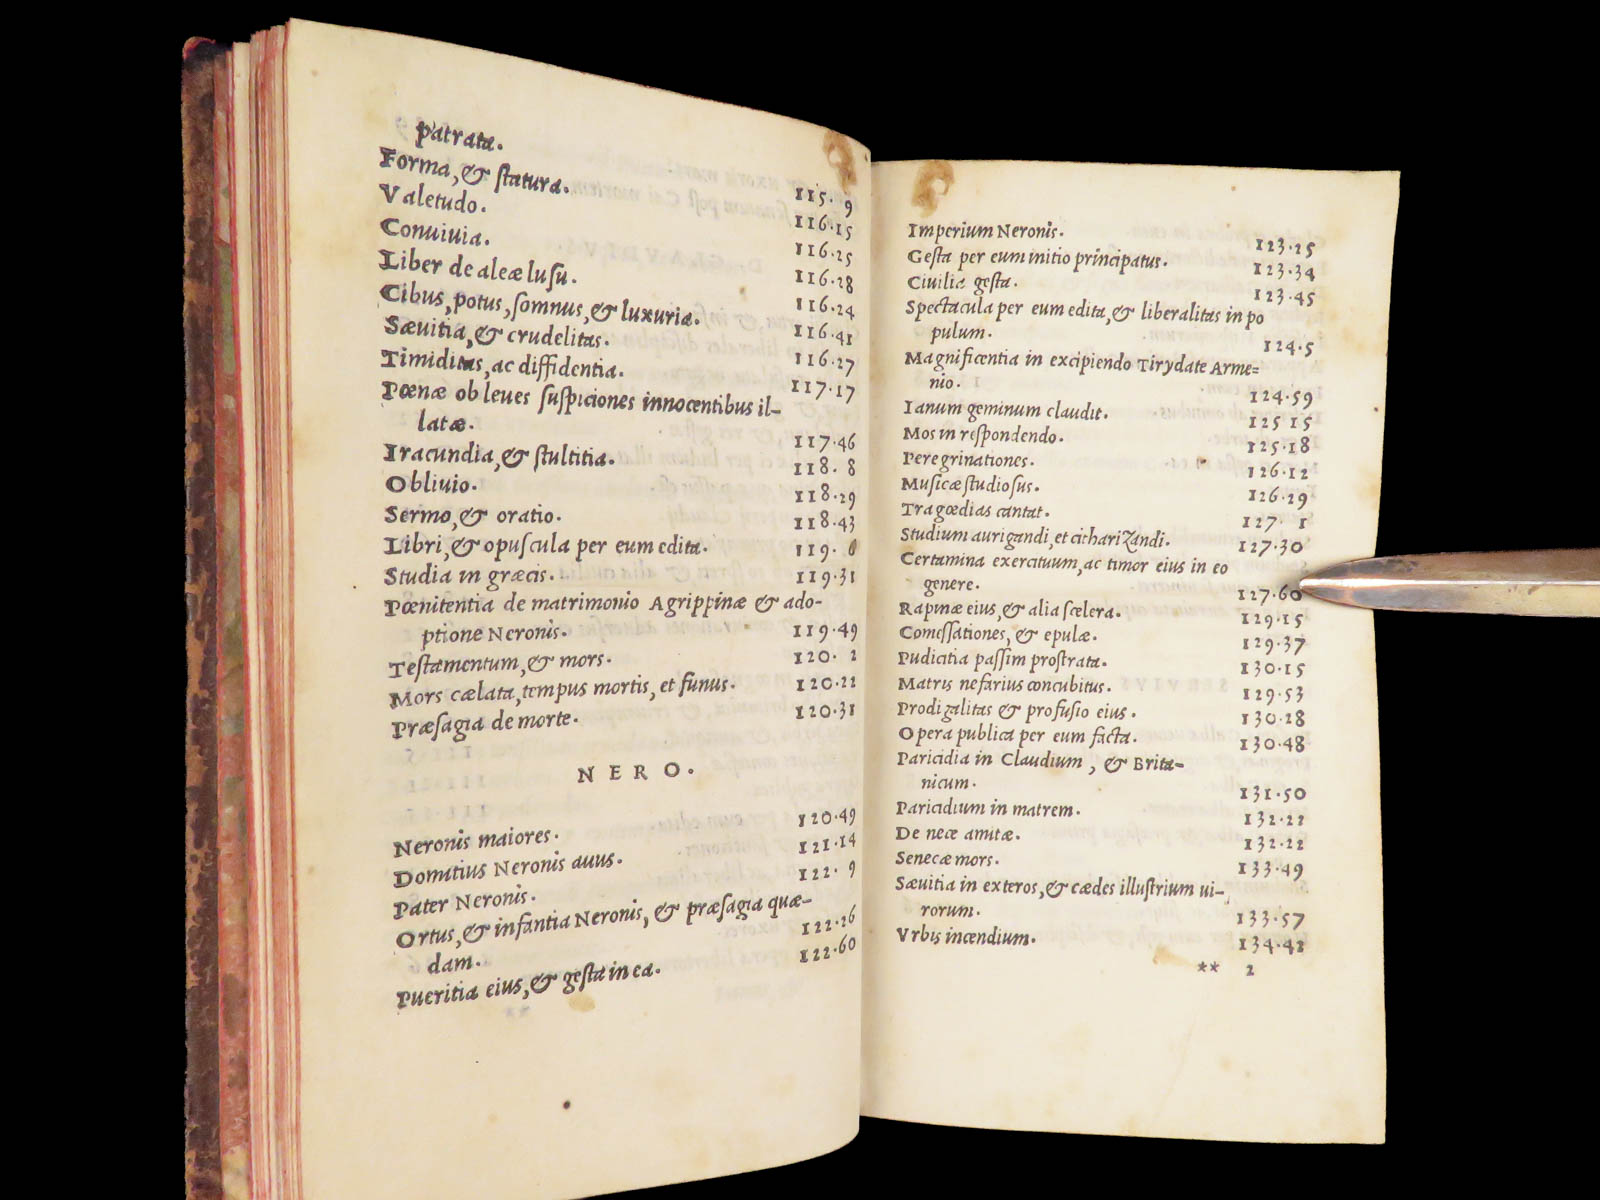 patrata. 115. 9
Forma, & statura. 116.15
Valetudo. 116.25
Conuiuia. 116.28
Liber de aleæ lusu. 116.24
Cibus, potus, somnus, & luxuria. 116.41
Sæuitia, & crudelitas. 116.27
Timiditas, ac diffidentia. 117.17
Pœnæ ob leues suspiciones innocentibus il-
latæ. 117.46
Iracundia, & stultitia. 118. 8
Obliuio. 118.29
Sermo, & oratio. 118.43
Libri, & opuscula per eum edita. 119. 6
Studia in græcis. 119.31
Pœnitentia de matrimonio Agrippinæ & ado-
ptione Neronis. 119.49
Testamentum, & mors. 120. 2
Mors cælata, tempus mortis, et funus. 120.22
Præsagia de morte. 120.31
NERO.
Neronis maiores. 120.49
Domitius Neronis auus. 121.14
Pater Neronis. 122. 9
Ortus, & infantia Neronis, & præsagia quæ-
dam. 122.26
Pueritia eius, & gesta in ea. 122.60
Imperium Neronis. 123.25
Gesta per eum initio principatus. 123.34
Ciuilia gesta. 123.45
Spectacula per eum edita, & liberalitas in po
pulum. 124.5
Magnificentia in excipiendo Tirydate Arme=
nio. 124.59
Ianum geminum claudit. 125 15
Mos in respondendo. 125.18
Peregrinationes. 126.12
Musicæ studiosus. 126.29
Tragœdias cantat. 127. 1
Studium aurigandi, et citharizandi. 127.30
Certamina exercituum, ac timor eius in eo
genere. 127.60
Rapinæ eius, & alia scelera. 129.15
Comessationes, & epulæ. 129.37
Pudicitia passim prostrata. 130.15
Matris nefarius concubitus. 129.53
Prodigalitas & profusio eius. 130.28
Opera publica per eum facta. 130.48
Paricidia in Claudium, & Brita-
nicum. 131.50
Paricidium in matrem. 132.22
De nece amitæ. 132.22
Senecæ mors. 133.49
Sæuitia in exteros, & cædes illustrium ui-
rorum. 133.57
Vrbis incendium. 134.41
** 2